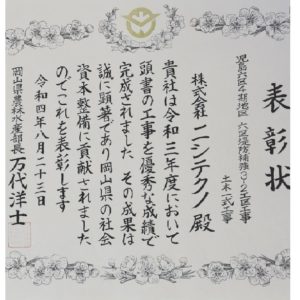 表彰状
児島六区4期地区 六区堤防補強3-2工区工事
土木一式工事
株式会社 ニシテクノ 殿
貴社は令和三年度において
頭書の工事を優秀な成績で
完成されました その成果は
誠に顕著であり岡山県の社会
資本整備に貢献されました
のでこれを表彰します
令和四年八月二十三日
岡山県農林水産部長 万代洋士